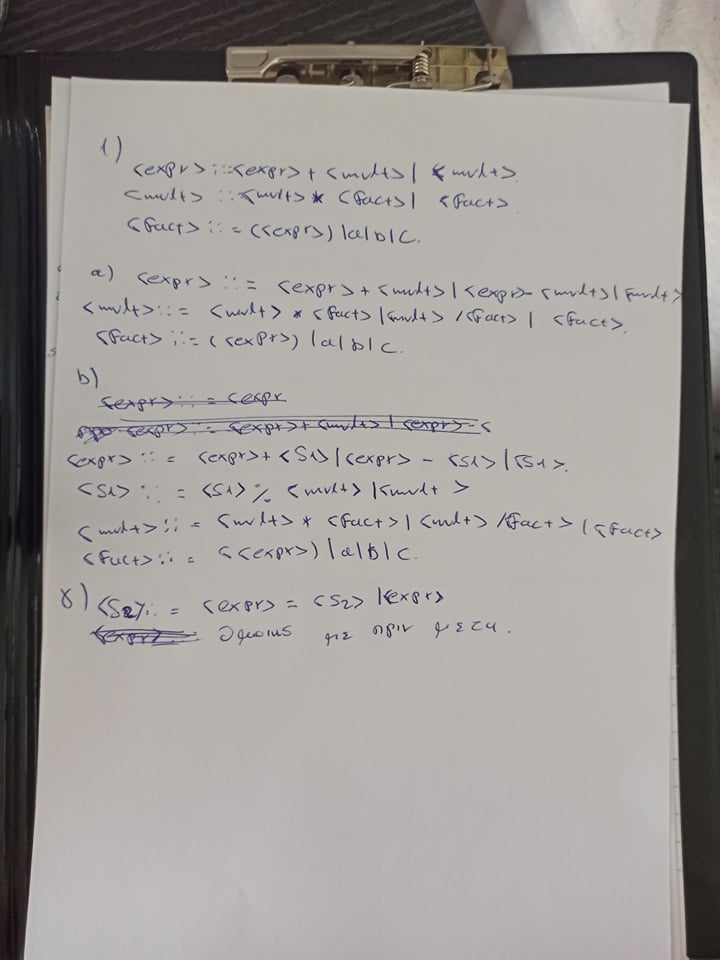 1)
<expr> ::= <expr> + <mult> | <mult>
<mult> ::= <mult> * <fact> | <fact>
<fact> ::= (<expr>) |a|b|c.
a) <expr> ::= <expr> + <mult> | <expr> - <mult> | <mult>
<mult> ::= <mult> * <fact> | <mult> / <fact> | <fact>.
<fact> ::= (<expr>) |a|b|c.
b)
<expr> ::= <expr
<expr> ::= <expr> + <mult> | <expr> - <
<expr> ::= <expr> + <S1> | <expr> - <S1> | <S1>.
<S1> ::= <S1> % <mult> | <mult>
<mult> ::= <mult> * <fact> | <mult> / <fact> | <fact>
<fact> ::= (<expr>) |a|b|c.
γ) <S2> ::= <expr> = <S2> | <expr>
<expr> Όμοιως με πριν μετα.